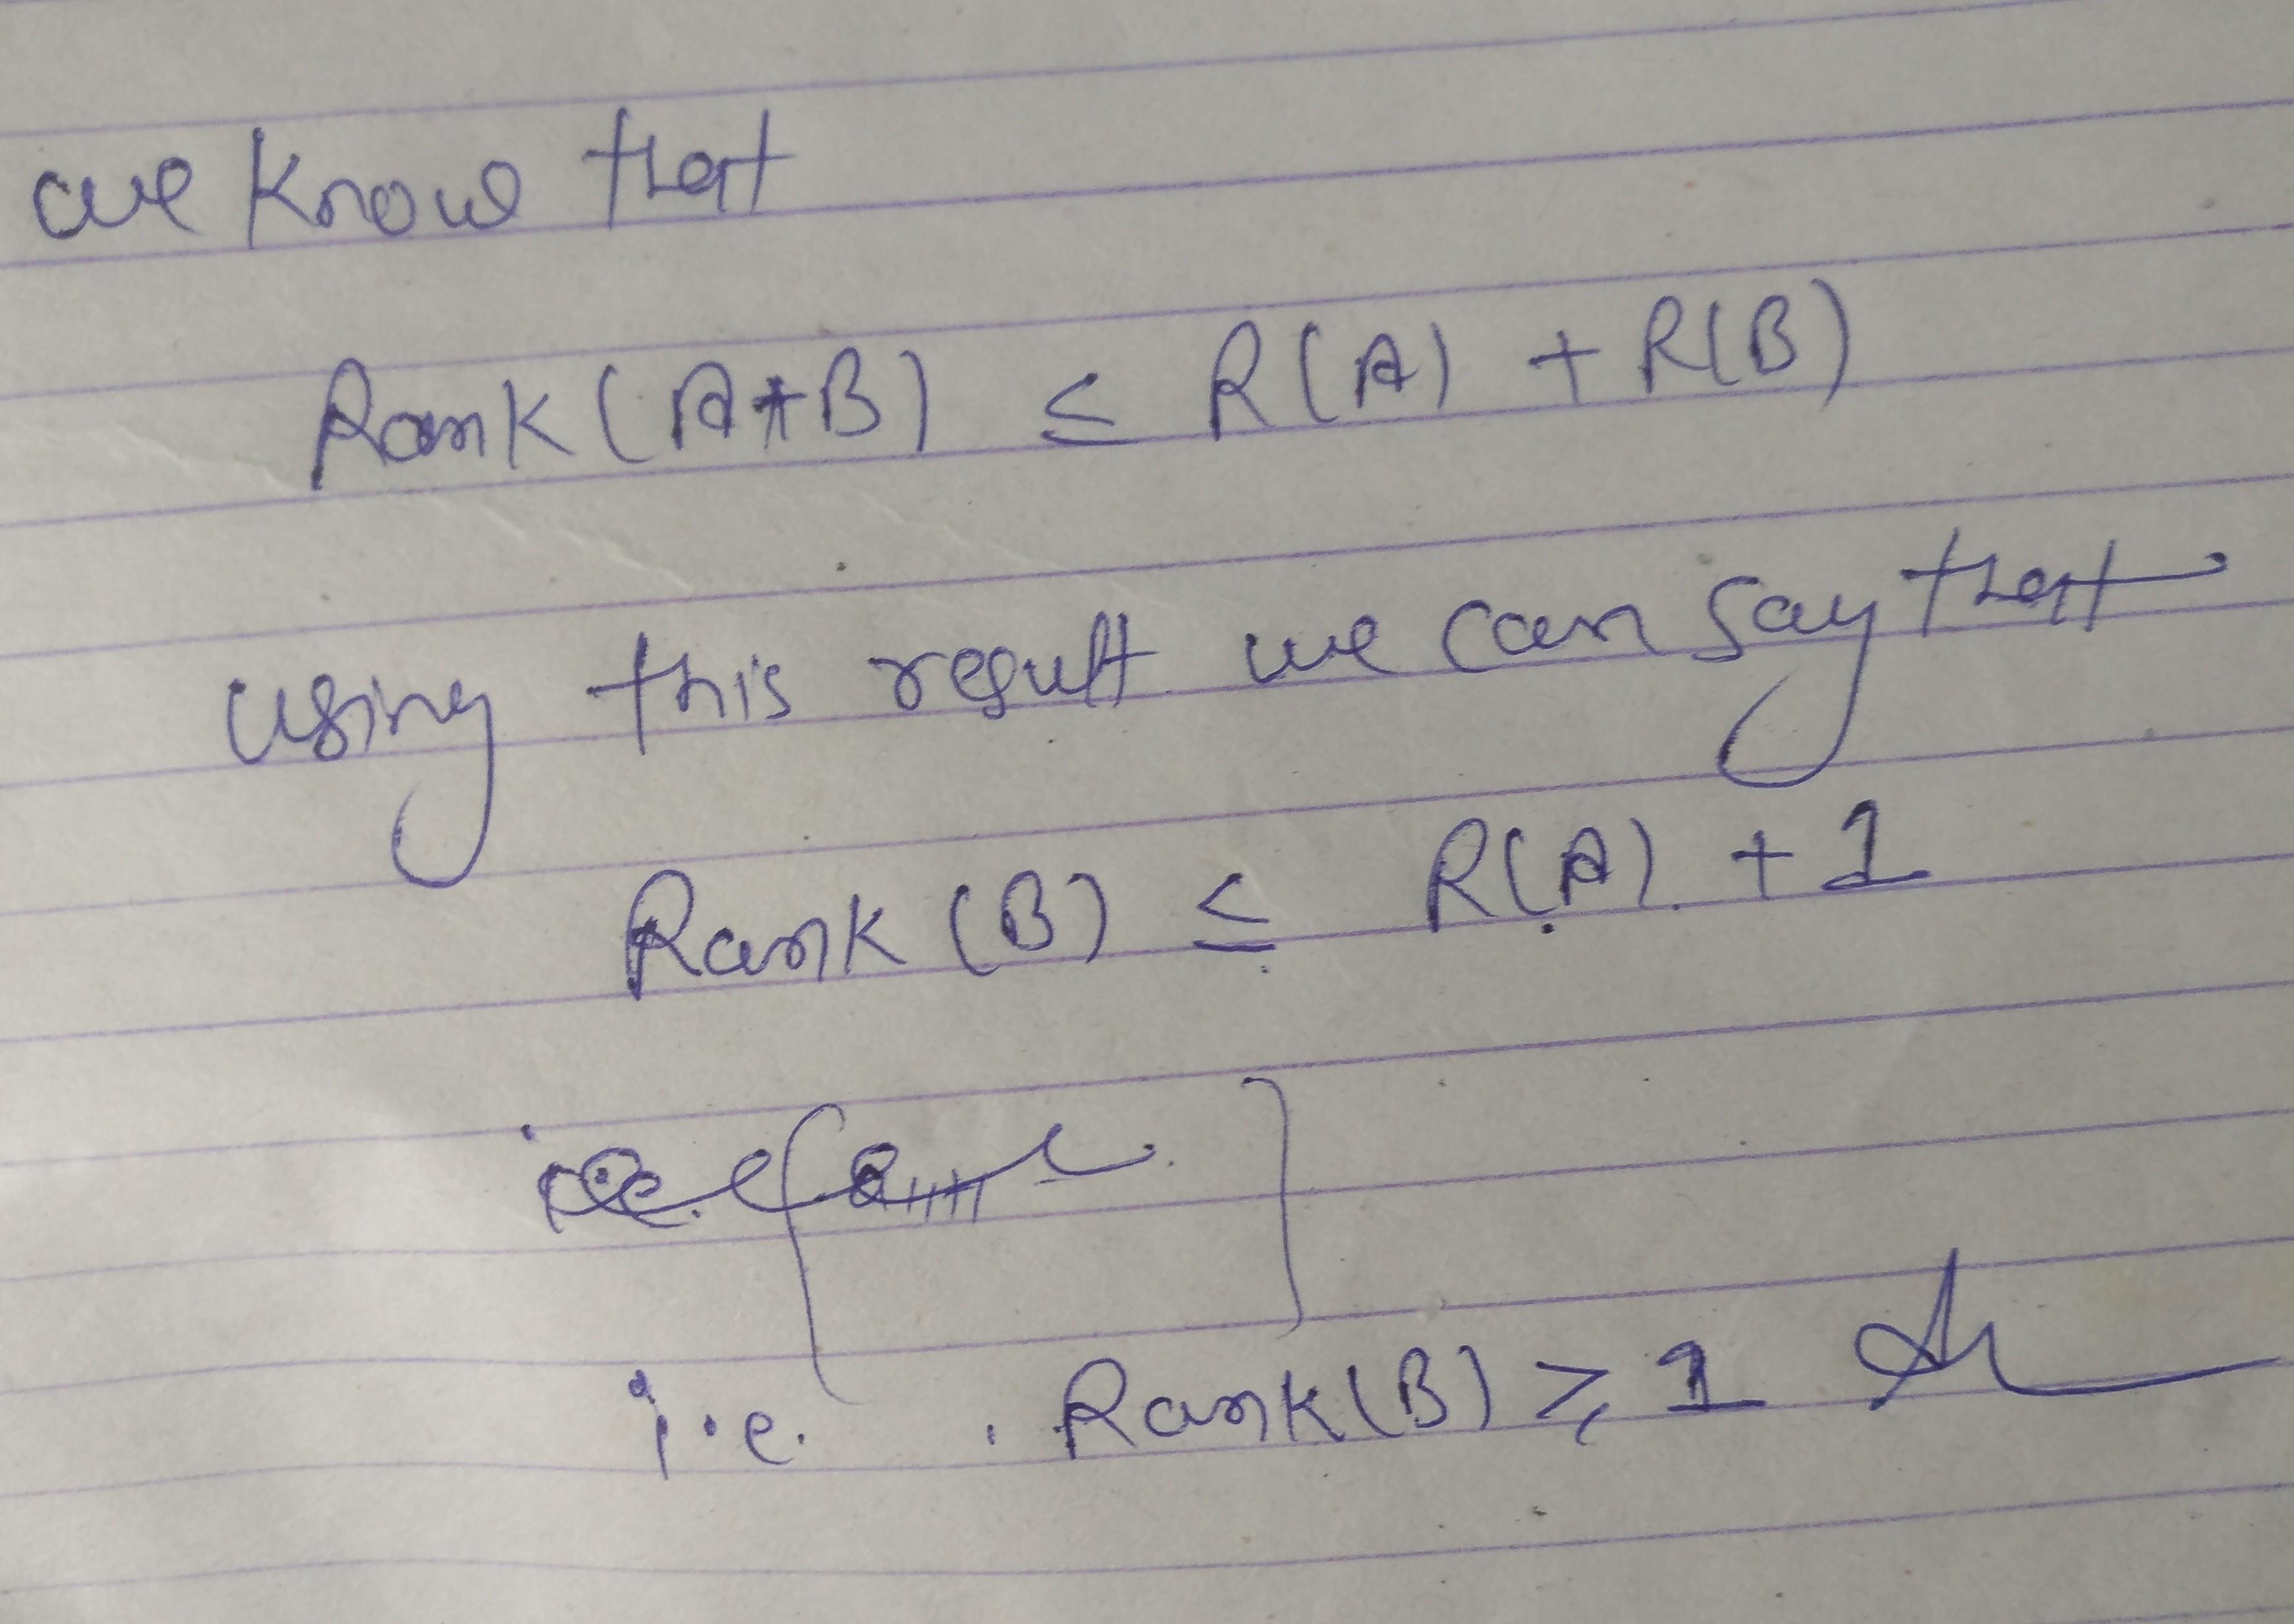 we know that
Rank (A+B) ≤ R(A) + R(B)
using this result we can say that
Rank (B) ≤ R(A) + 1
i.e. Rank(B) ≥ 1